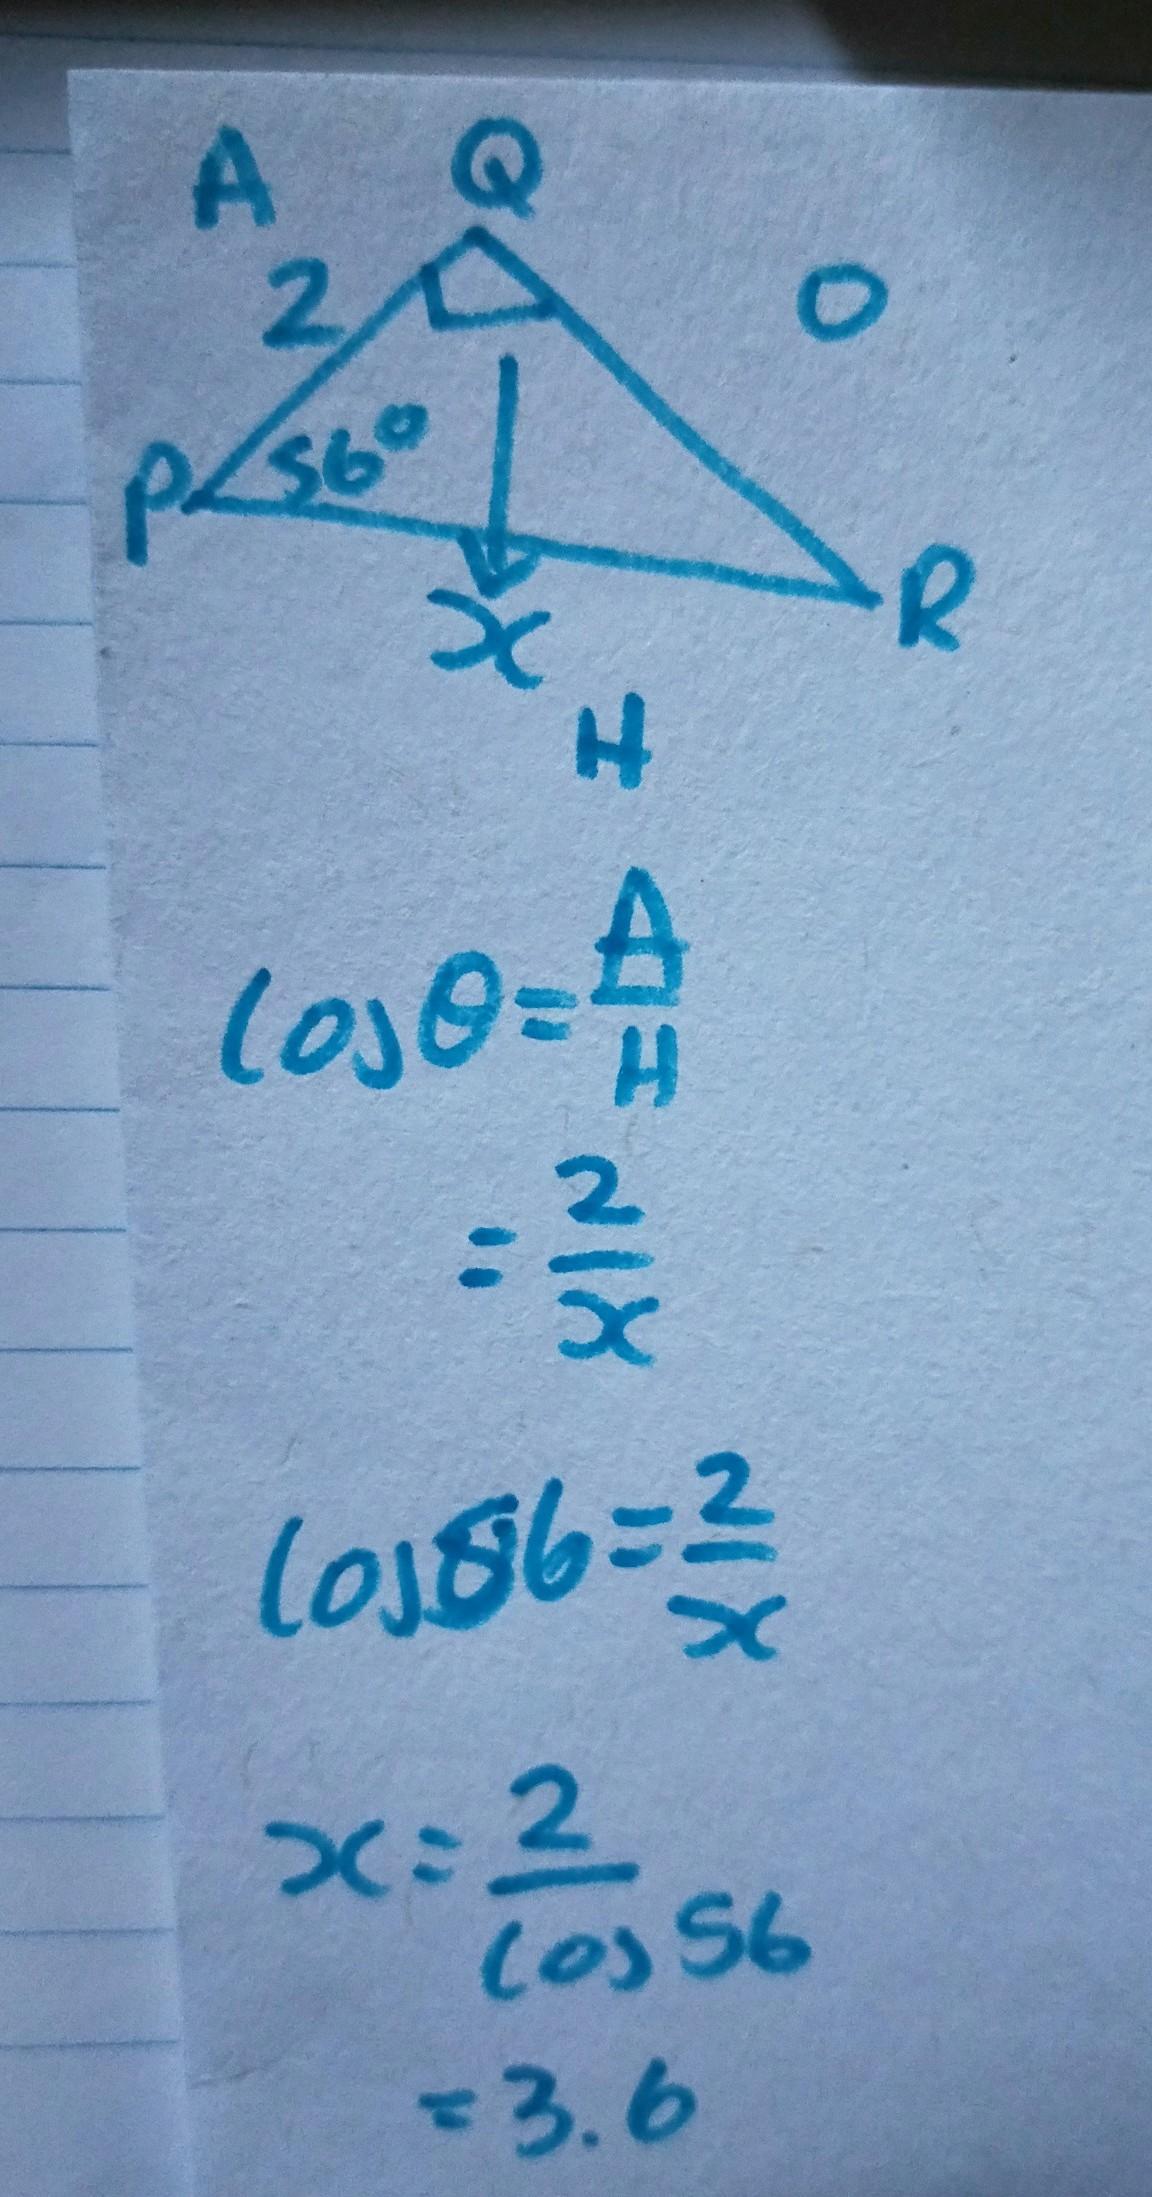 A Q
2 O
P 56° R
x
H
cosθ = A/H
= 2/x
cos56 = 2/x
x = 2/cos 56
= 3.6